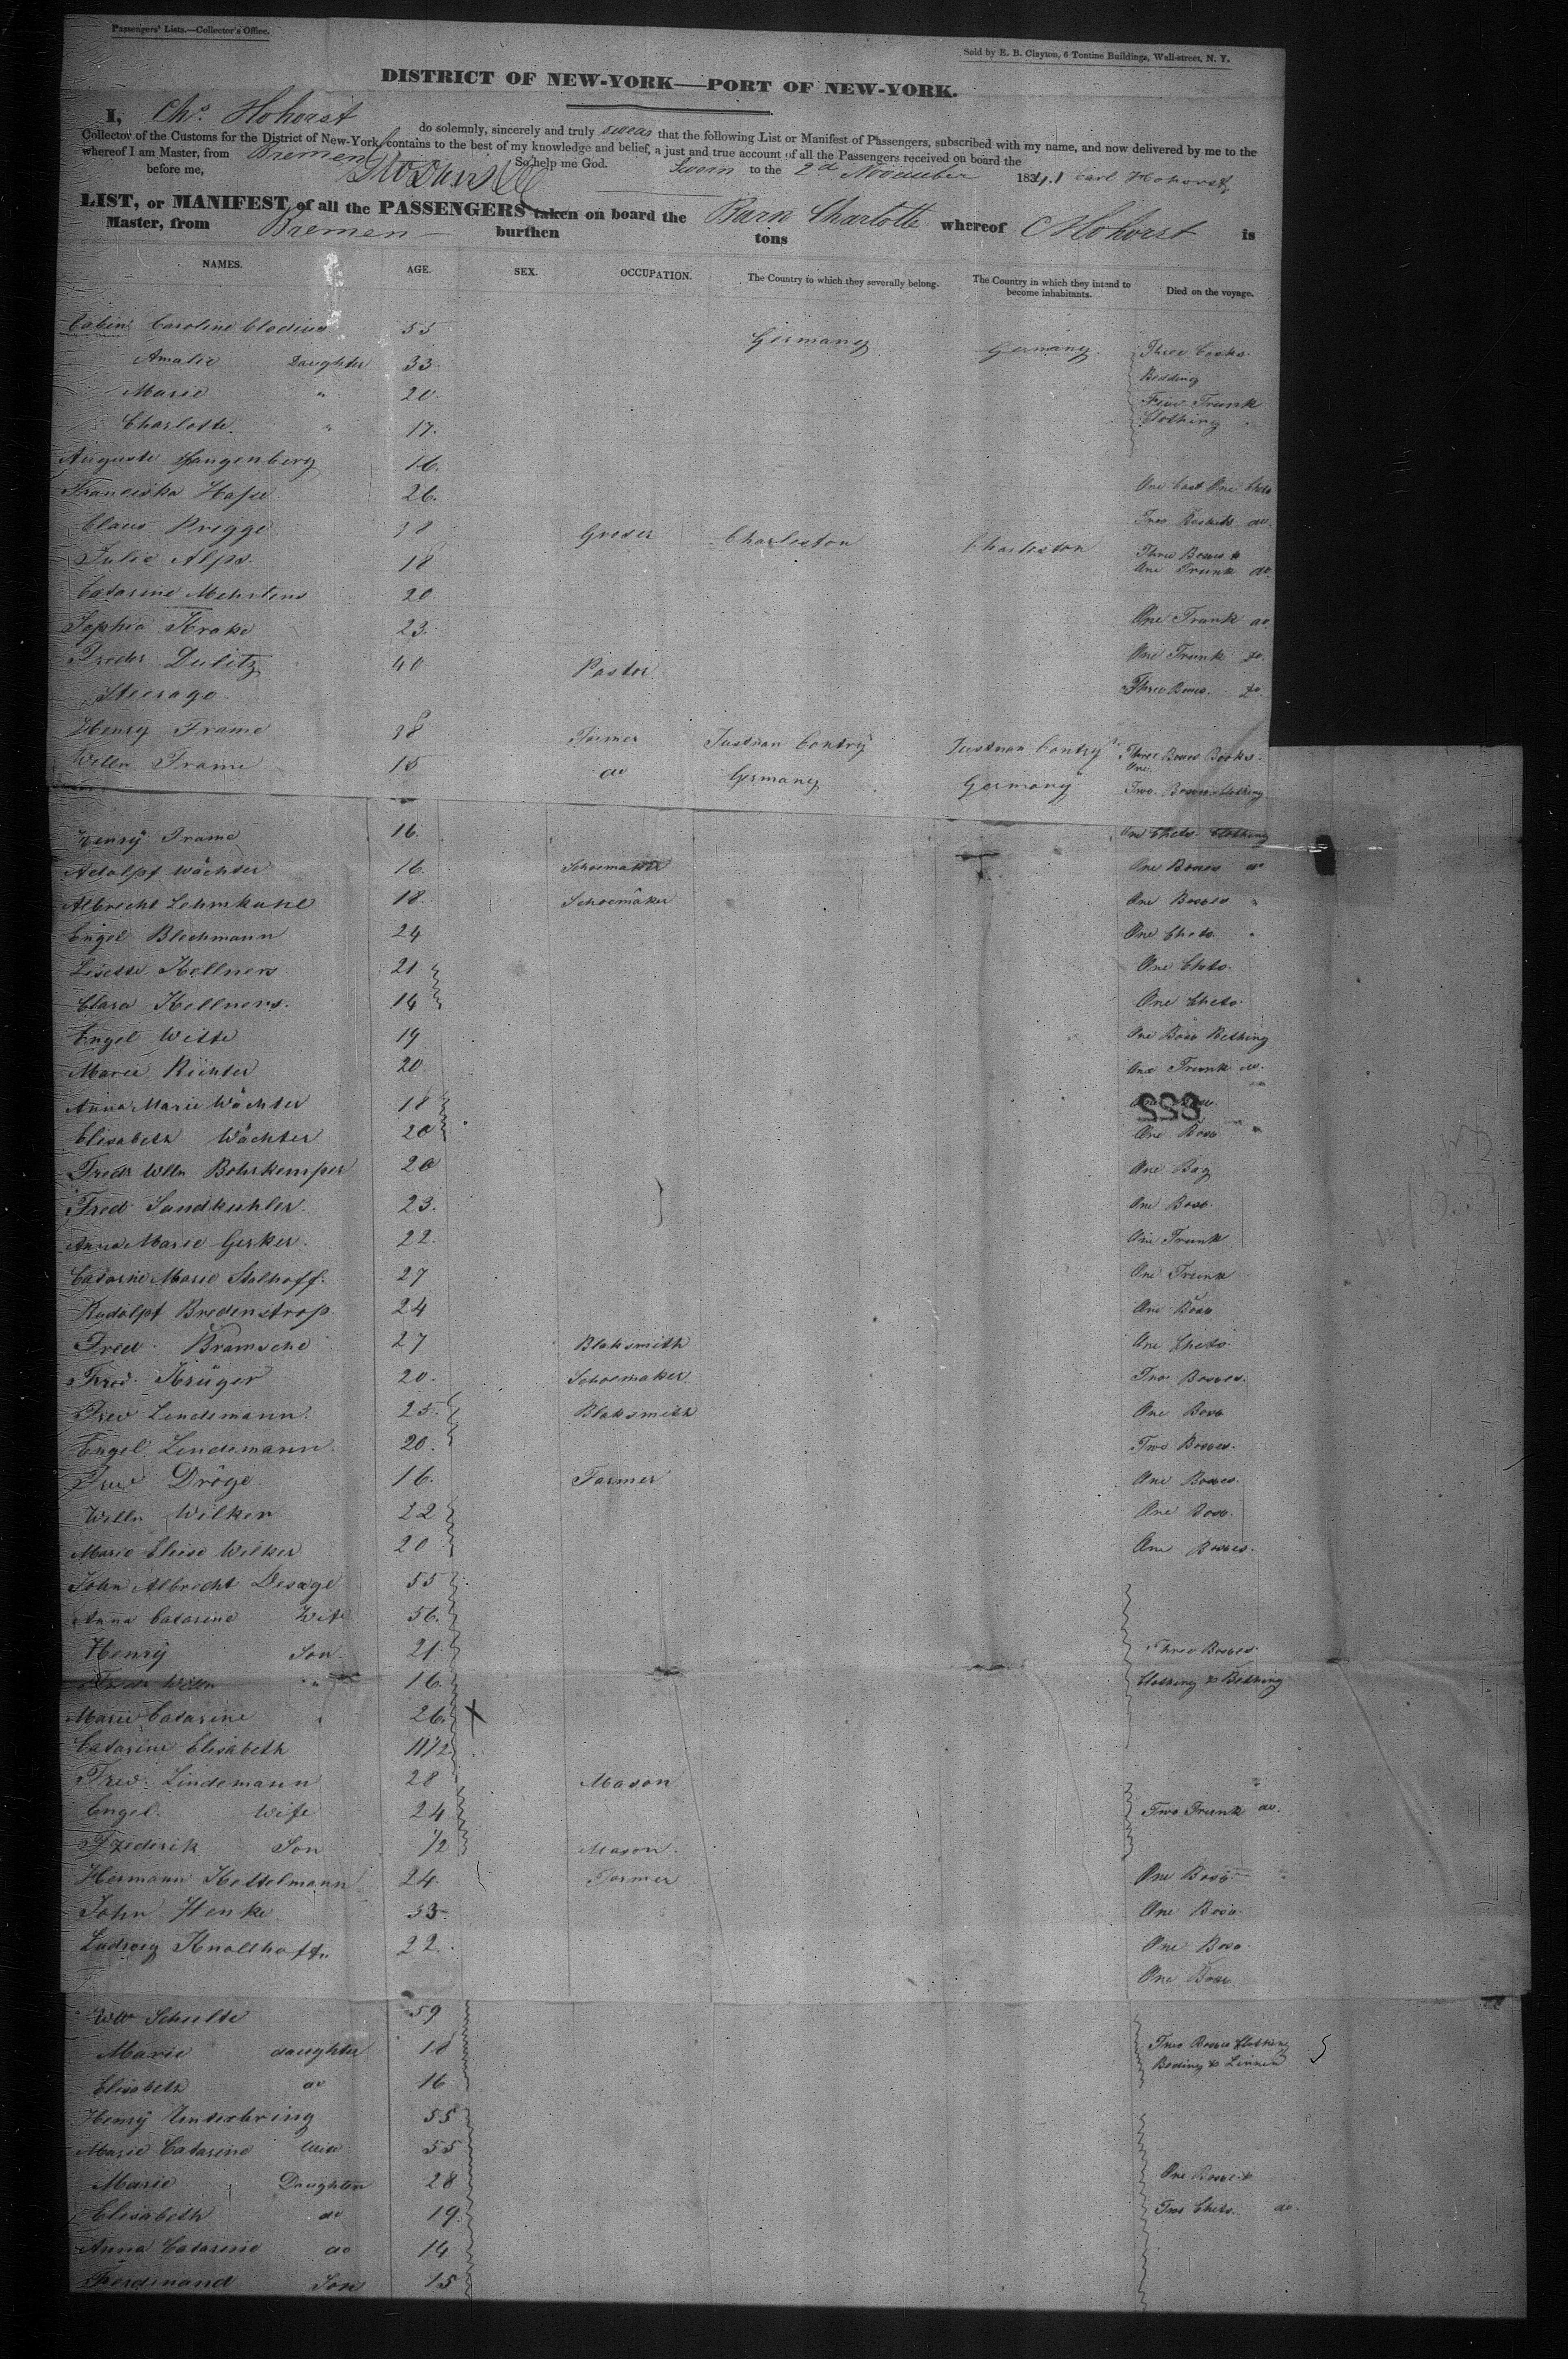 Passengers' Lists.—Collector's Office.
Sold by E. B. Clayton, 6 Tontine Buildings, Wall-street, N. Y.
DISTRICT OF NEW-YORK—PORT OF NEW-YORK.
I, Chs. Hohorst do solemnly, sincerely and truly swear that the following List or Manifest of Passengers, subscribed with my name, and now delivered by me to the
Collector of the Customs for the District of New-York, contains to the best of my knowledge and belief, a just and true account of all the Passengers received on board the
whereof I am Master, from Bremen So help me God.
Sworn to the 2d November 1841 Carl Hohorst
before me,
LIST, or MANIFEST of all the PASSENGERS taken on board the Bark Charlotte whereof C Hohorst is
Master, from Bremen burthen tons
NAMES. AGE. SEX. OCCUPATION. The Country to which they severally belong. The Country in which they intend to become inhabitants. Died on the voyage.
Cabin Caroline Clodius 55 Germany Germany
Amalie Daughter 33 Three
Marie " 20 Bedding
Charlotte " 17 Trunk Clothing
Auguste 16
Franciska Hasse 26 One One
Claus Prigge 38 Groser Charleston Charleston
Julie Alps 18 Three Boxes & One Trunk do
Catarine Mehrtens 20
Sophia Krake 23 One Trunk do
Dulitz 40 Pastor One Trunk do
Steerage Three Boxes do
Henry Frame 38 Farmer Contry Contry Three Boxes Books
Willm Frame 15 do Germany Germany Two Boxes Clothing
Henry Frame 16 One Chets Clothing
Adolpf Wächter 16 Schoemaker One Boxes do
Albrecht Lehmkuhl 18 Schoemaker One Boxes "
Engel Blechmann 24 One Chets "
Lisette Kellners 21 One Chets
Clara Kellners 14 One Chets
Engel Witte 19 One Box
Marie Richter 20 One Trunk do
Anna Marie Wächter 18
Elisabeth Wächter 20 One Box
Fredr Willm Bohrkemper 20 One Bag
Fred Sandkuhler 23 One Box
Anna Marie Gerker 22 One Trunk
Catarine Marie Stalhoff 27 One Trunk
Rudolpf Bredenstrop 24 One Box
Fred Bramsche 27 Blaksmith One Chets
Fred Krüger 20 Schoemaker Two Boxes
Fred Lindemann 25 Blaksmith One Box
Engel Lindemann 20 Two Boxes
Fred Dröge 16 Farmer One Boxes
Willm Wilker 22 One Box
Marie Elise Wilker 20 One Boxes
John Albrecht Desage 55
Anna Catarine Wife 56
Henry Son 21 Three Boxes
Fredr Willm " 16 Clothing & Bething
Marie Catarine " 26 X
Catarine Elisabeth 11/2
Fred Lindemann 28 Mason
Engel Wife 24 Two Trunk do
Frederik Son 1/2 Mason
Hermann Kettelmann 24 Farmer One Box
John Henke 33 One Box
Ludwig Knollhoff 22 One Box
One Box
Wm Schulte 59
Marie daughter 18 Two Boxes Clothing
Beding & Linnen
Elisabeth do 16
Henry Unterbring 55
Marie Catarine Wife 55
Marie Daughter 28 One Boxe &
Elisabeth do 19 Two Chets do
Anna Catarine do 14
Ferdinand Son 15